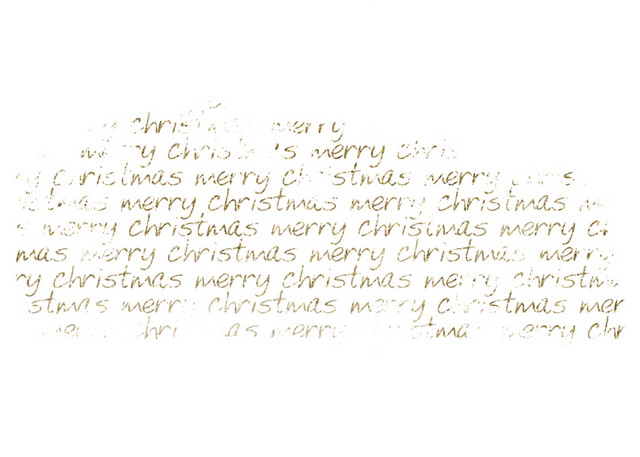 christmas merry
merry christmas merry chris
y christmas merry christmas merry chris
istmas merry christmas merry christmas m
s merry christmas merry christmas merry ch
mas merry christmas merry christmas merry
ry christmas merry christmas merry christm
stmas merry christmas merry christmas mer
merry christmas merry christmas merry chr